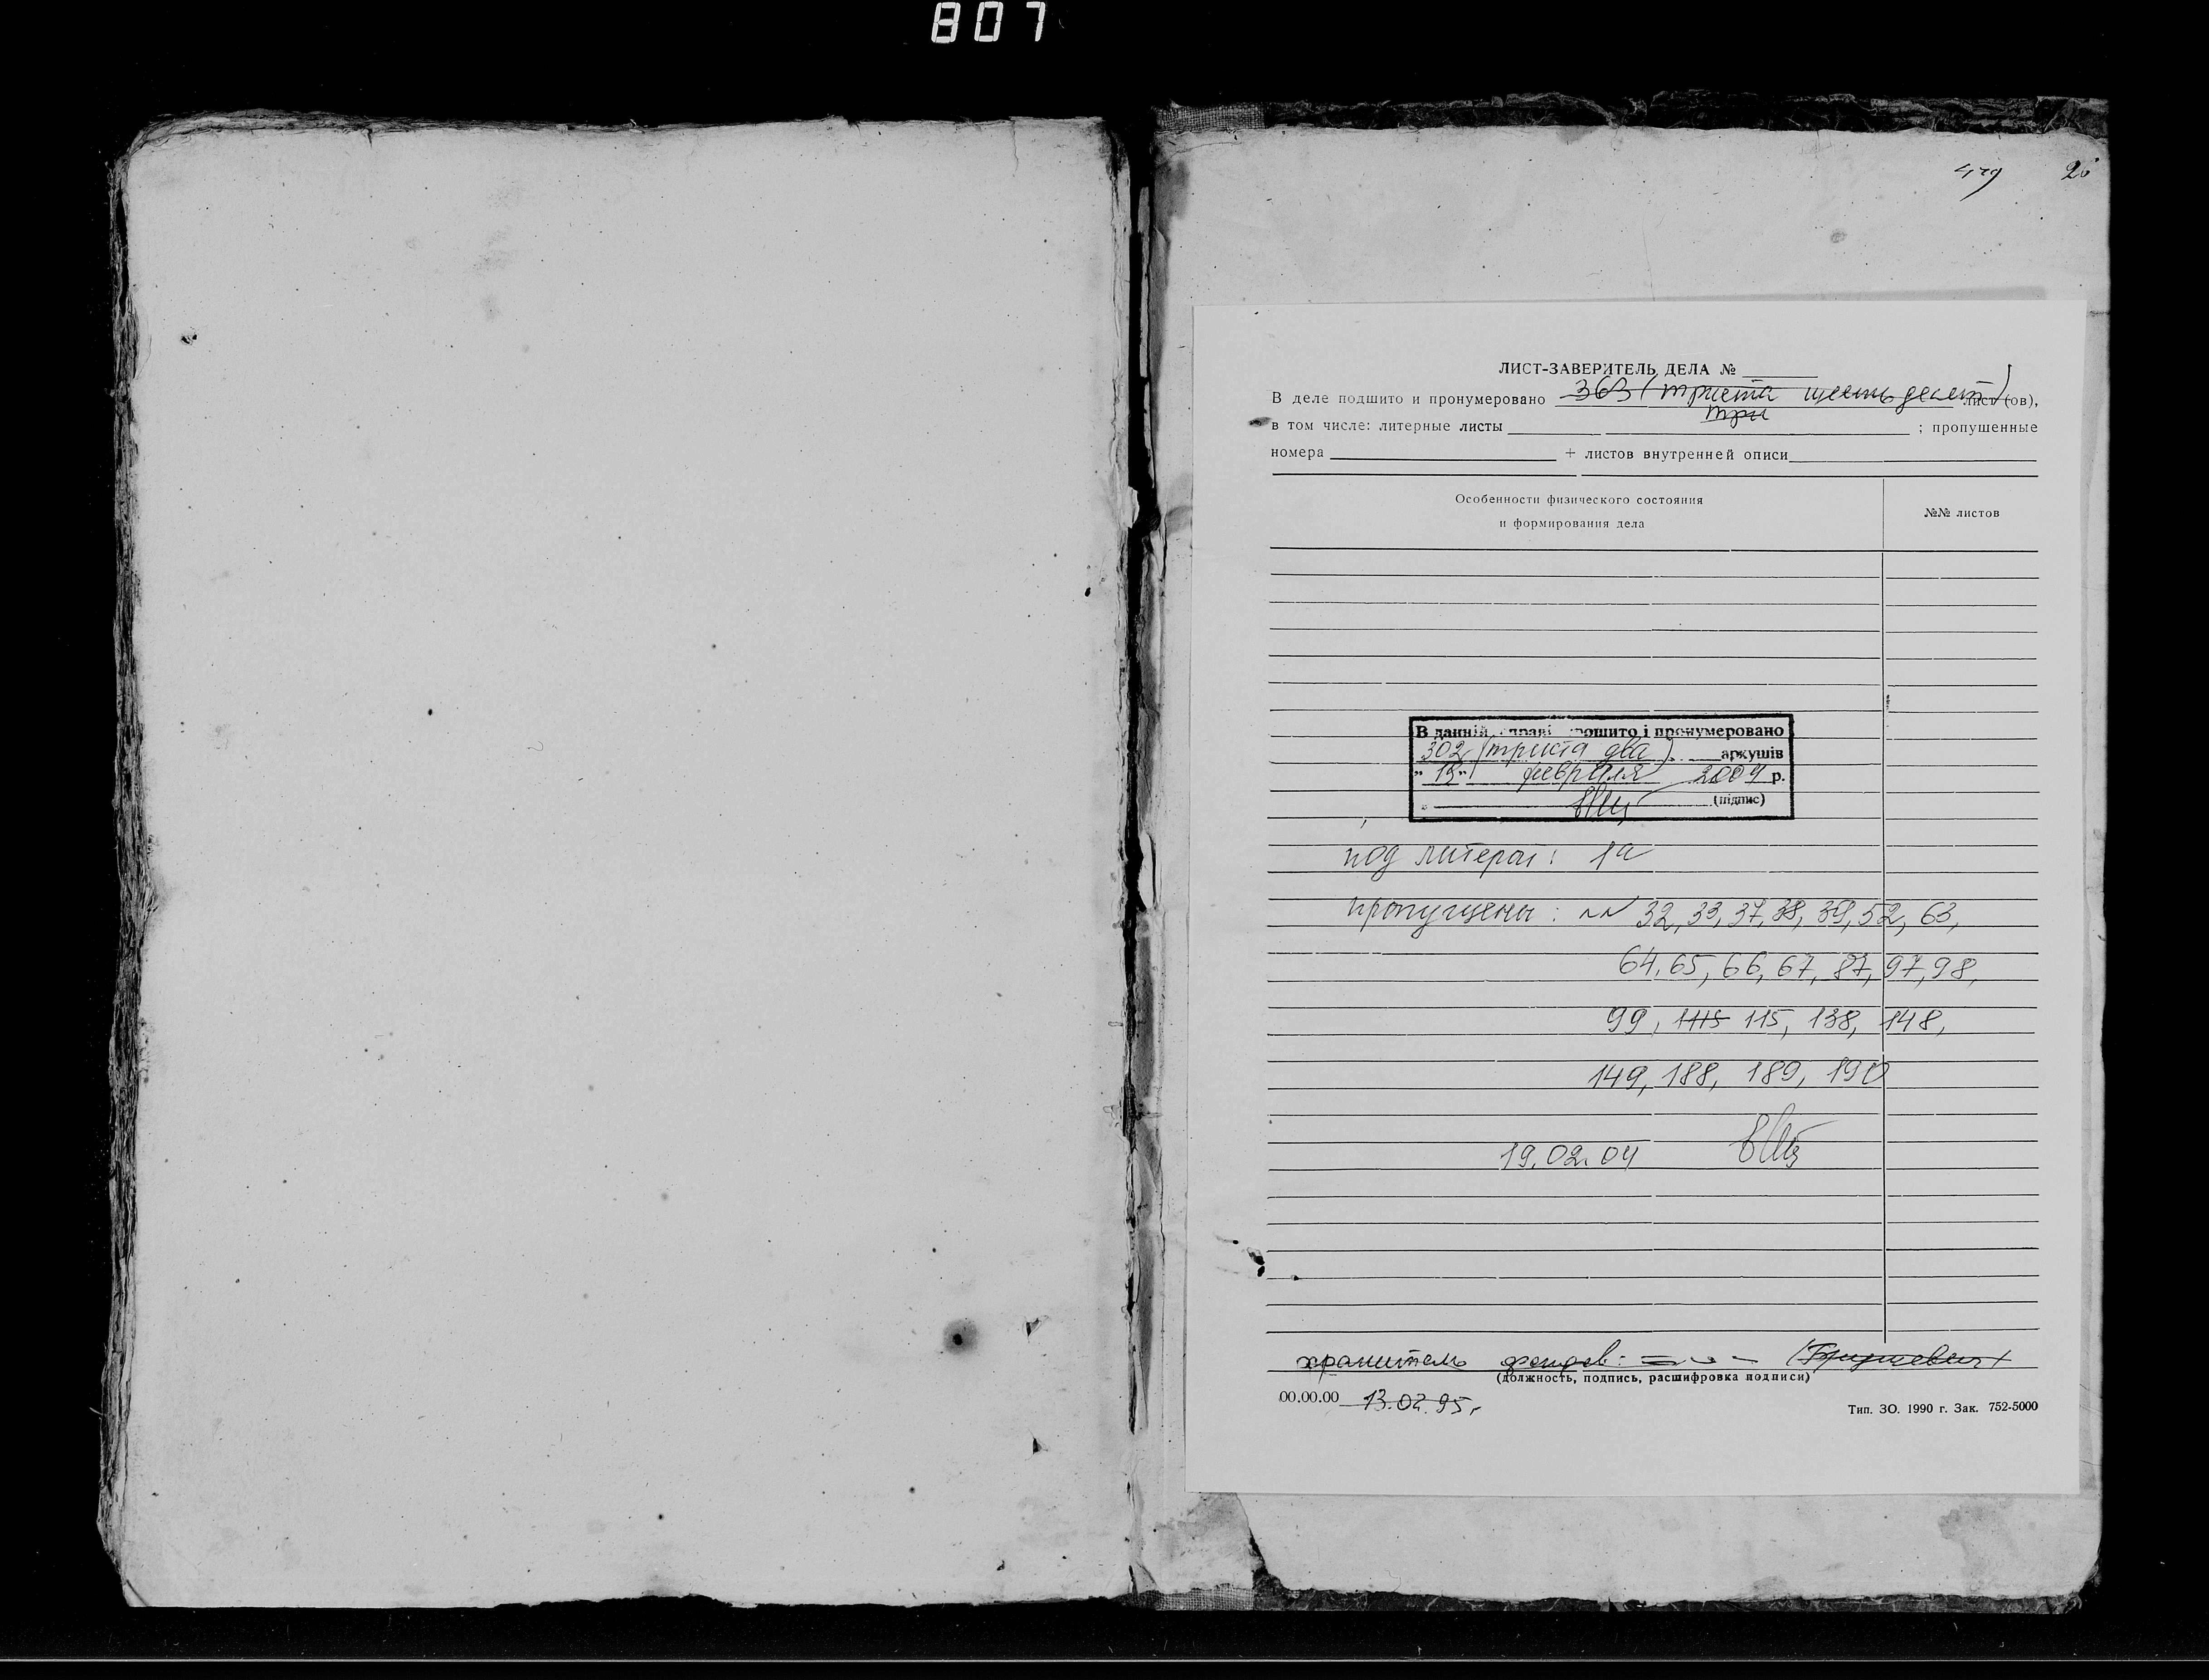 807
479 20
ЛИСТ-ЗАВЕРИТЕЛЬ ДЕЛА №
В деле подшито и пронумеровано 363 (триста шестьдесят лист (ов),
три)
в том числе: литерные листы ; пропушенные
номера + листов внутренней описи
Особенности физического состояния
и формирования дела
№№ листов
В данній справі прошито і пронумеровано
302 (триста два) аркушів
" 19 " февраля 2004 р.
(підпис)
под литерой: 1а
пропущены: №№ 32, 33, 37, 38, 39, 52, 63,
64, 65, 66, 67, 87, 97, 98,
99, 1115 115, 138, 148,
149, 188, 189, 190
19.02.04
хранитель фондов:
(должность, подпись, расшифровка подписи)
00.00.00 13.02.95г
Тип. ЗО. 1990 г. Зак. 752-5000